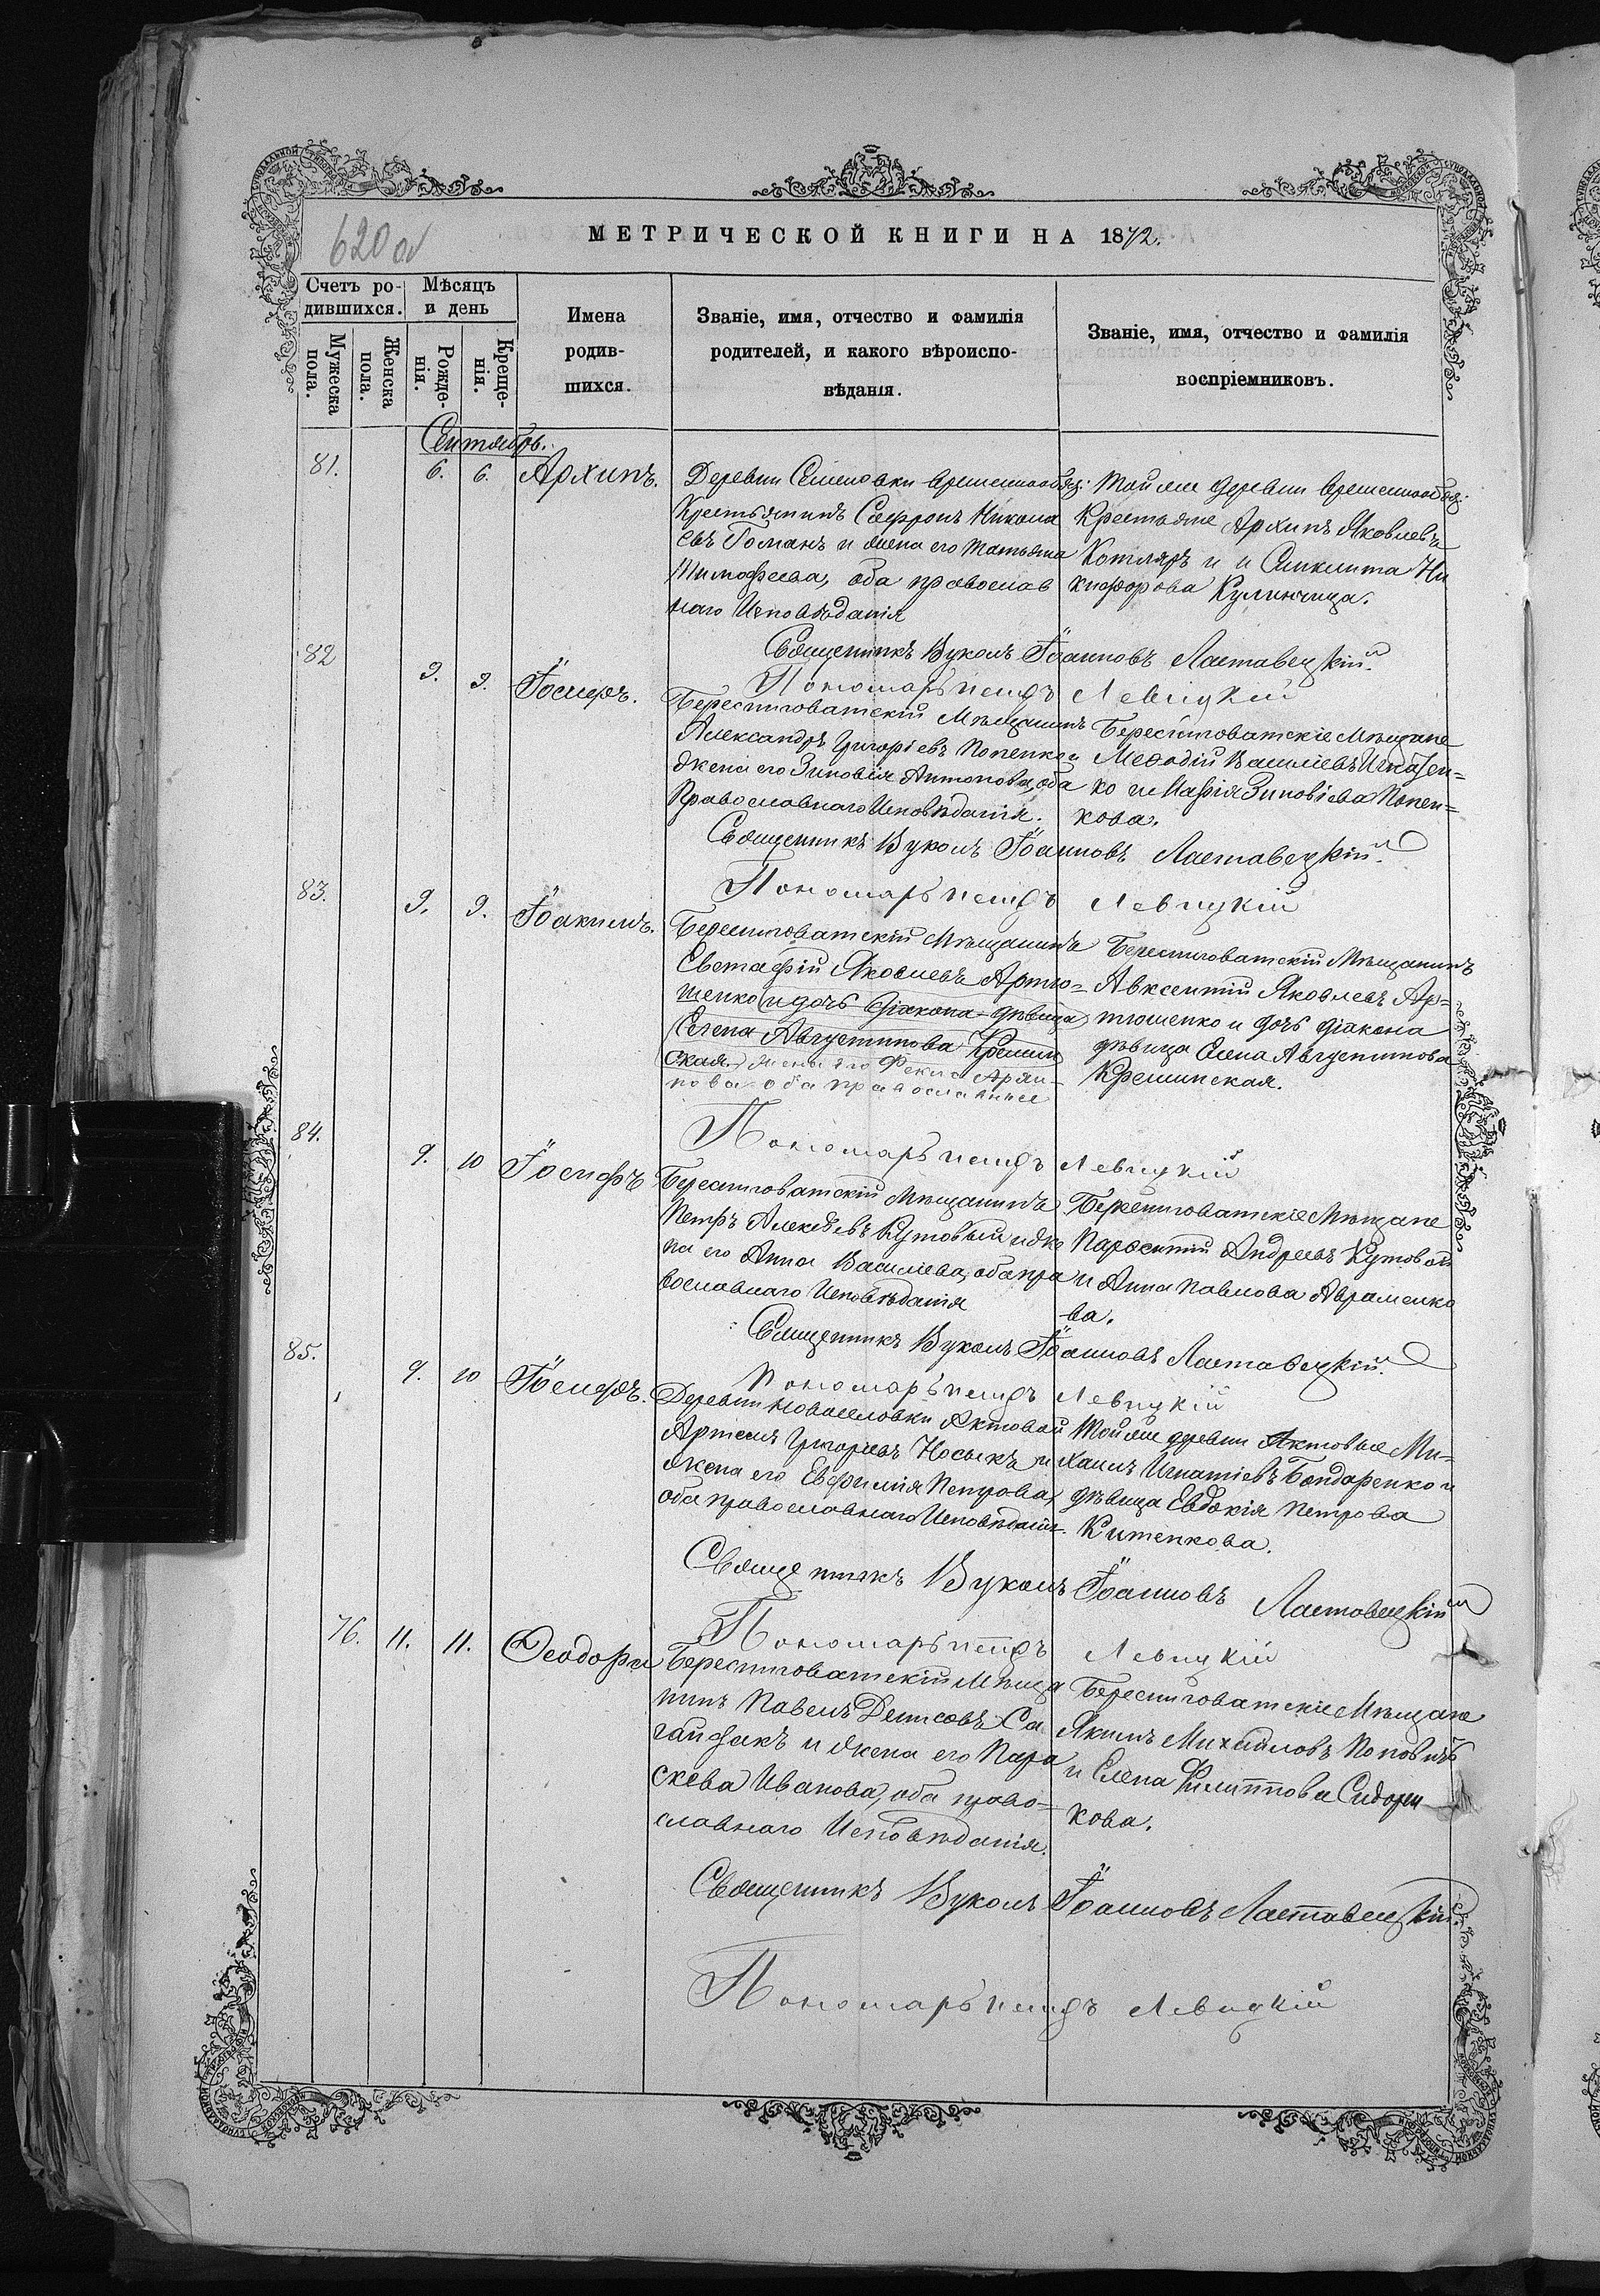 620 об
МЕТРИЧЕСКОЙ КНИГИ НА 1872.
Счетъ ро-
дившихся.
Мужеска
пола.
Женска
пола.
Мѣсяцъ
и день
Рожде-
нія.
Креще-
нія.
Имена
родив-
шихся.
Званіе, имя, отчество и фамилія
родителей, и какого вѣроиспо-
вѣданія.
Званіе, имя, отчество и фамилія
воспріемниковъ.
Сентябрь.
81. 6. 6. Архипъ.
Деревни Семеновки временнообяз:
Крестьянинъ Сафронъ Никола
евъ Гоманъ и жена его Татьяна
Тимофеева, оба православ
наго Исповѣданія
Той же деревни временнообяз:
Крестьяне Архипъ Яковлевъ
Котляръ и Ни
кифорова
Священникъ Вуколъ Іоанновъ Ластавецкій.
Пономарь Петръ Левицкій
82 9. 9. Іосифъ.
Берестоватскій Мѣщанинъ
Александръ Григоріевъ Попенко и
жена его Зиновія Антонова, оба
Православнаго Исповѣданія.
Мѣщане
Меѳодій Василіевъ
ко и Марія Зиновіева Попен=
кова.
Священникъ Вуколъ Іоанновъ Ластавецкій.
Пономарь Петръ Левицкій
83. 9. 9. Іоакимъ.
Мѣщанинъ
Евстафій Яковлевъ Артю=
шенко и дочь діакона дѣвица
Елена Августинова Кремин
ская. жена его Фекла
нова оба православные
Мѣщанинъ
Авксентій Яковлевъ Ар=
тюшенко и дочь діакона
дѣвица Елена Августинова
Креминская.
Пономарь Петръ Левицкій
84. 9. 10 Іосифъ
Мѣщанинъ
Петръ Алексѣевъ Кутовый и же
на его Анна Василіева, оба пра
вославнаго Исповѣданія
Мѣщане
Андреевъ Кутовой
и Анна Павлова Авраменко
ва.
Священникъ Вуколъ Іоанновъ Ластавецкій.
Пономарь Петръ Левицкій
85. 9. 10 Іосифъ.
Деревни Новоселовки
Артемъ Григорьевъ Носыкъ и
жена его Евфимія Петрова,
оба православнаго Исповѣданія.
Той же деревни Ми=
хаилъ Игнатіевъ Бондаренко и
дѣвица Евдокія Петрова
Китенкова.
Священникъ Вуколъ Іоанновъ Ластовецкій
Пономарь Петръ Левицкій
76. 11. 11. Ѳеодора
Мѣща
нинъ Павелъ Денисовъ Са
гайдакъ и жена его Пара
скева Иванова, оба право=
славнаго Исповѣданія.
Мѣщане
Якимъ Михайловъ Поповичъ
и Елена Филиппова Сидорен
кова.
Священникъ Вуколъ Іоанновъ Ластавецкій.
Пономарь Петръ Левицкій